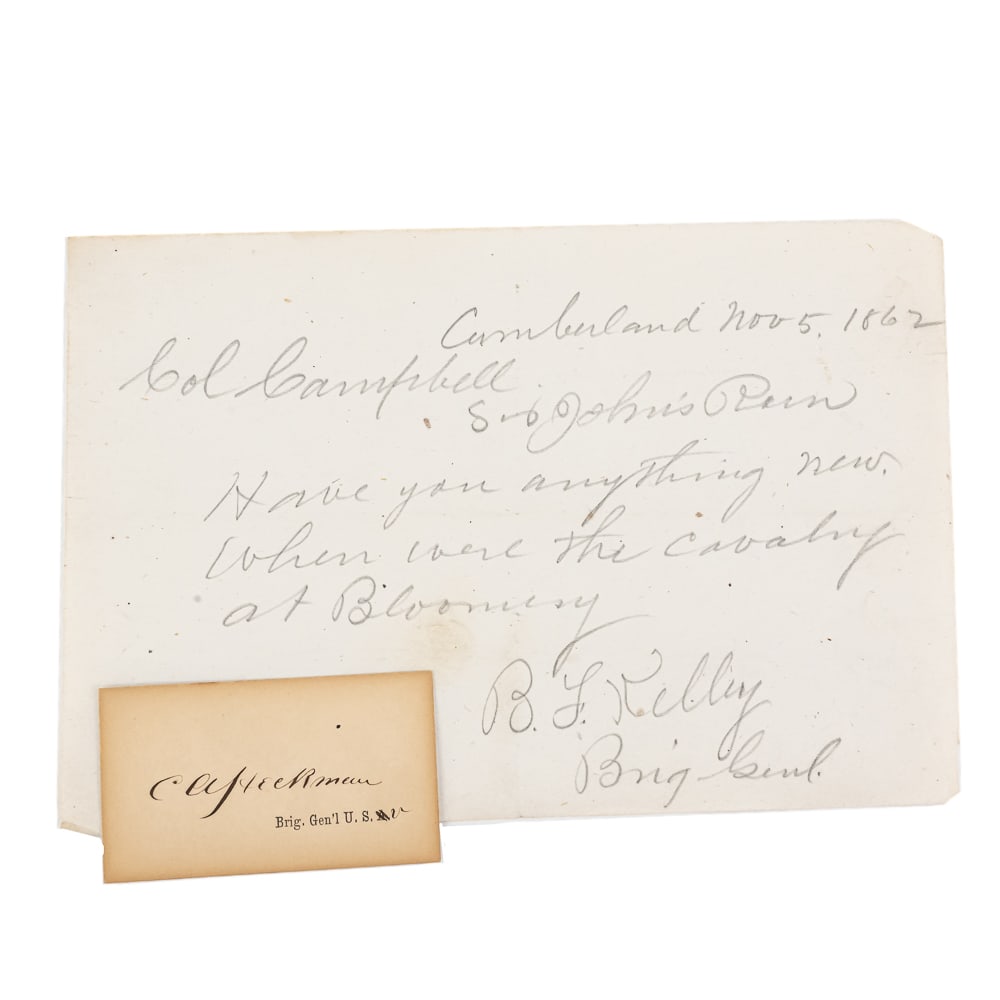 Cumberland Nov 5, 1862
Col Campbell
Sir John's Run
Have you anything new.
When were the cavalry
at Bloomery
B. F. Kelley
Brig Genl.
C A Heckman
Brig. Gen'l U. S. V